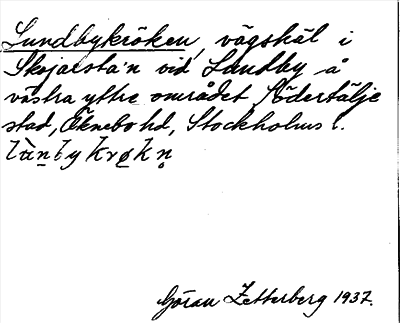 Lundbykröken, vägskäl i
Skojarsta'n vid Lundby å
västra yttre området, Södertälje
stad, Öknebo hd, Stockholms l.
Göran Zetterberg 1937.